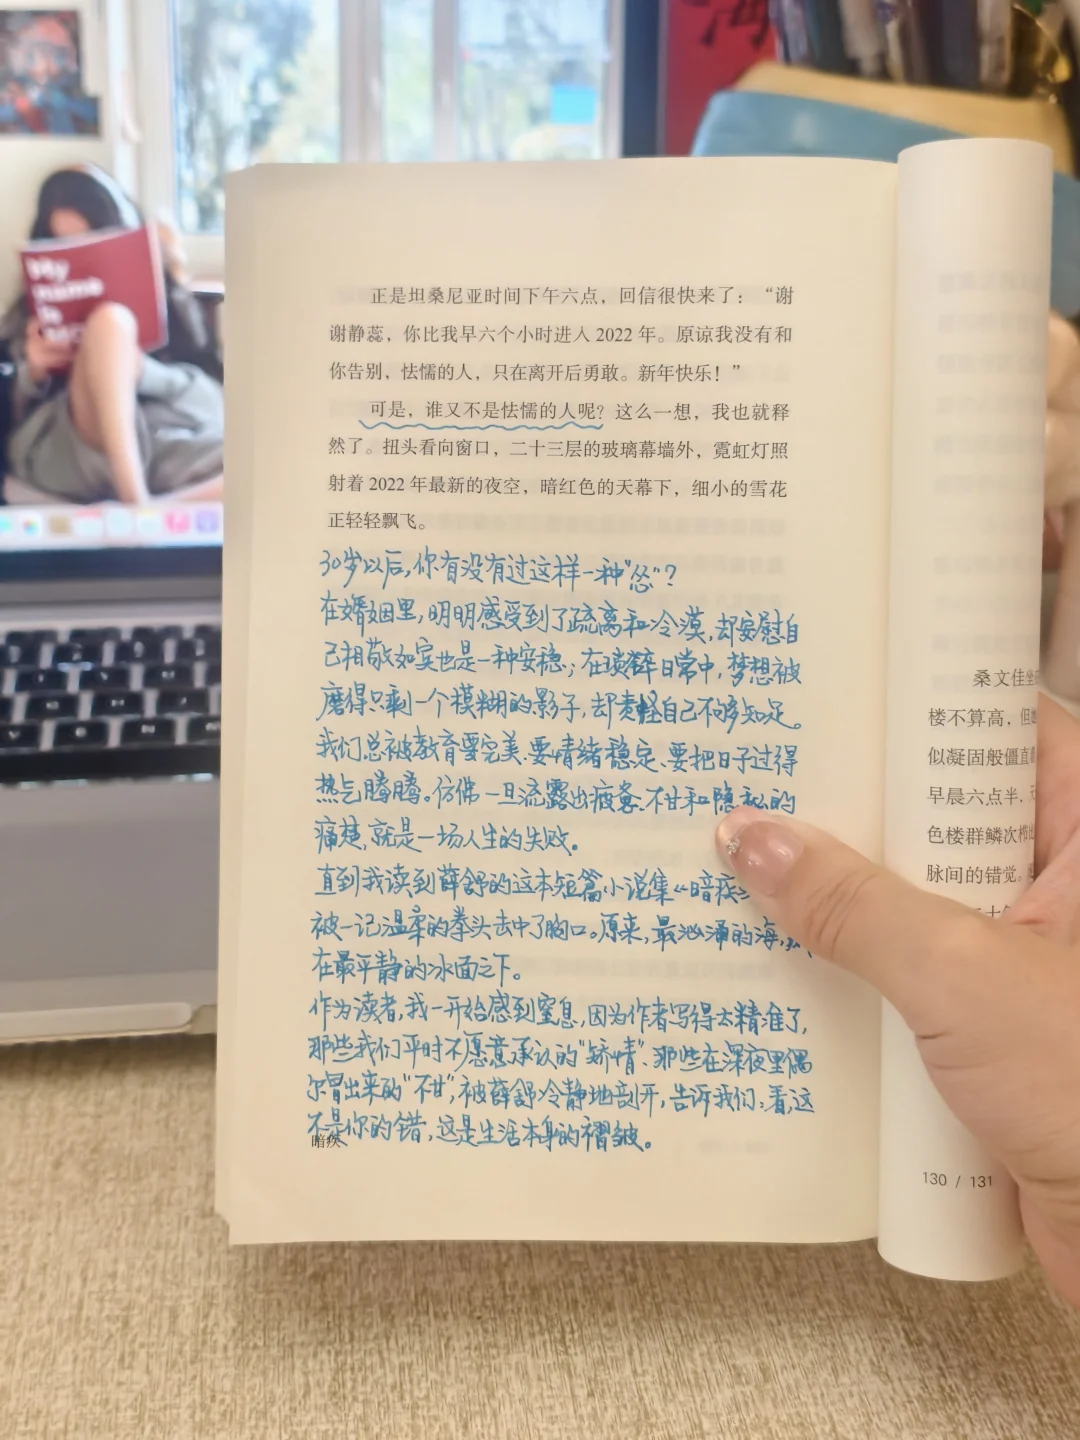 正是坦桑尼亚时间下午六点，回信很快来了：“谢
谢静蕊，你比我早六个小时进入 2022 年。原谅我没有和
你告别，怯懦的人，只在离开后勇敢。新年快乐！”
可是，谁又不是怯懦的人呢？这么一想，我也就释
然了。扭头看向窗口，二十三层的玻璃幕墙外，霓虹灯照
射着 2022 年最新的夜空，暗红色的天幕下，细小的雪花
正轻轻飘飞。
30岁以后，你有没有过这样一种“怂”？
在婚姻里，明明感受到了疏离和冷漠，却安慰自
己相敬如宾也是一种安稳；在琐碎日常中，梦想被
磨得只剩一个模糊的影子，却责怪自己不够知足。
我们总被教育要完美、要情绪稳定、要把日子过得
热气腾腾。仿佛一旦流露出疲惫、不甘和隐私的
痛楚，就是一场人生的失败。
直到我读到薛舒的这本短篇小说集《暗疾
被一记温柔的拳头击中了胸口。原来，最汹涌的海，
在最平静的冰面之下。
作为读者，我一开始感到窒息，因为作者写得太精准了，
那些我们平时不愿意承认的“矫情”、那些在深夜里偶
尔冒出来的“不甘”，被薛舒冷静地剖开，告诉我们：看，这
不是你的错，这是生活本身的褶皱。
暗疾
桑文佳坐
楼不算高，但
似凝固般僵直
早晨六点半，
色楼群鳞次栉比
脉间的错觉。
130 / 131
My
name
is